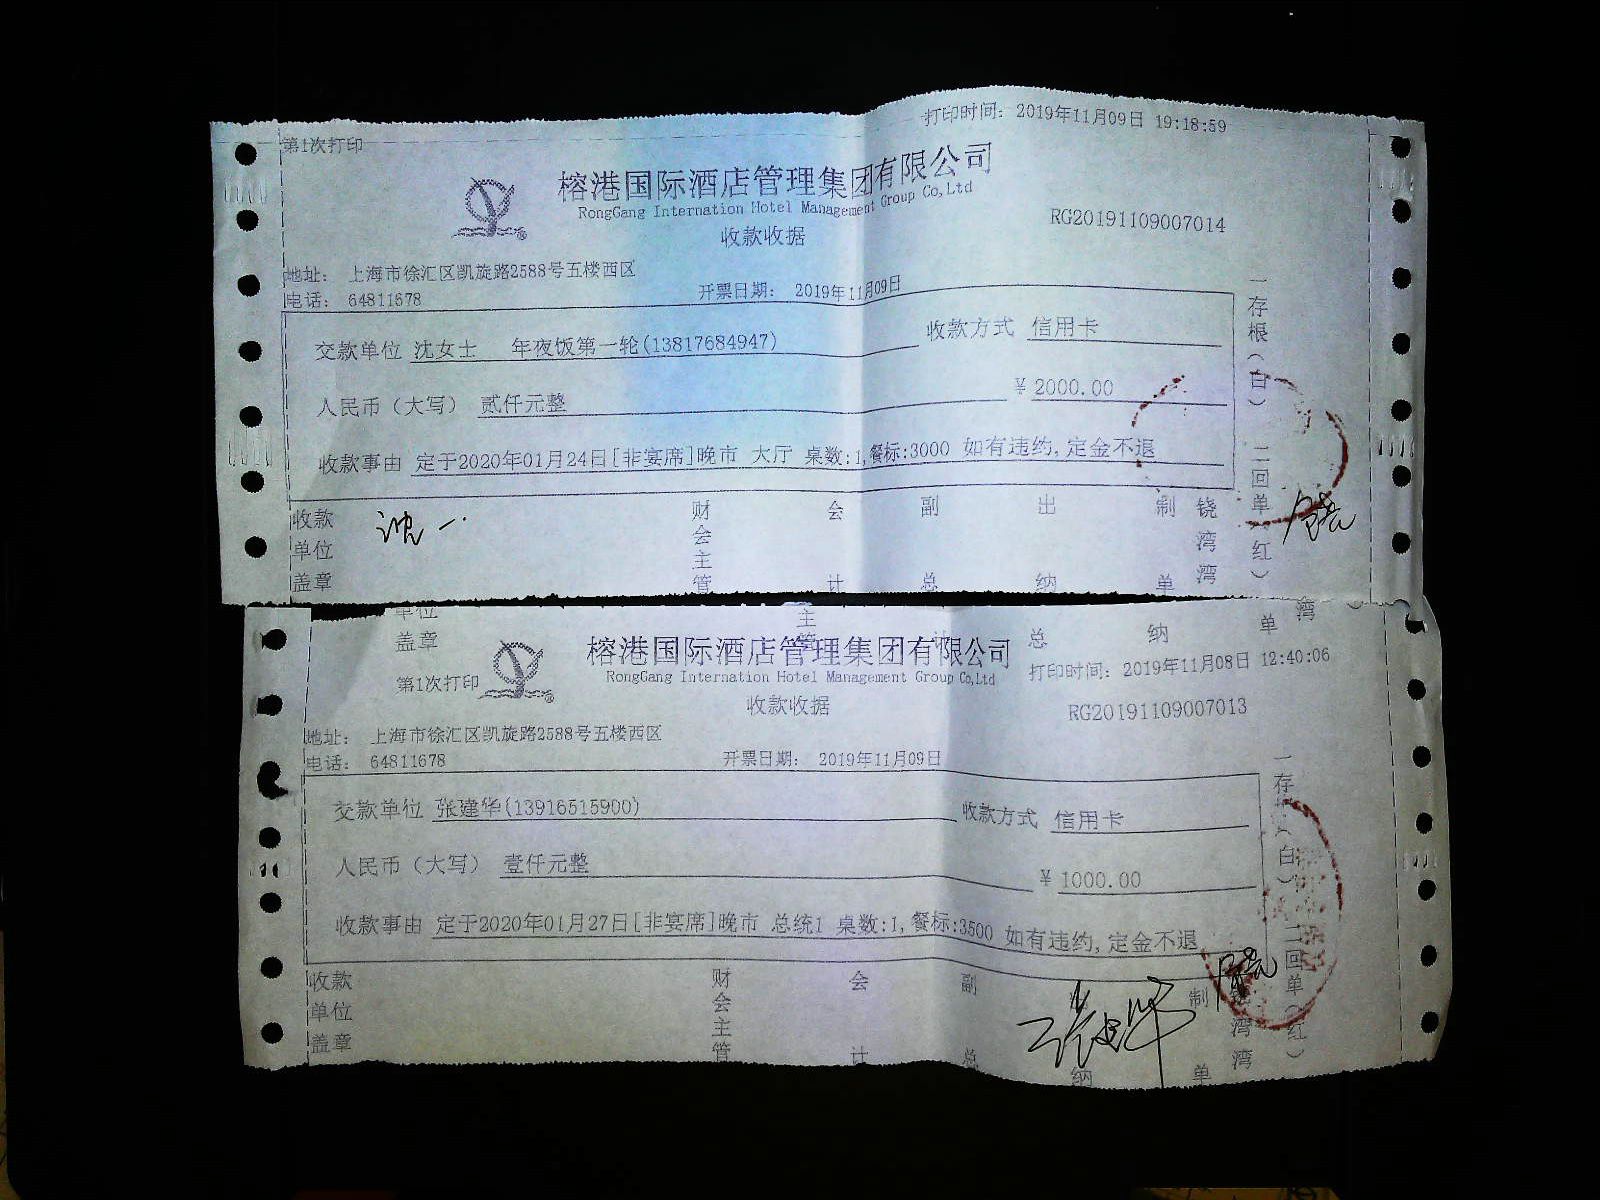 第1次打印
打印时间: 2019年11月09日 19:18:59
榕港国际酒店管理集团有限公司
RongGang Internation Hotel Management Group Co,Ltd
收款收据
RG20191109007014
地址: 上海市徐汇区凯旋路2588号五楼西区
电话: 64811678
开票日期: 2019年11月09日
交款单位 沈女士 年夜饭第一轮(13817684947)
收款方式 信用卡
人民币（大写） 贰仟元整
¥ 2000.00
收款事由 定于2020年01月24日[非宴席]晚市 大厅 桌数:1,餐标:3000 如有违约,定金不退
一存根（白） 二回单（红）
收款单位盖章
沈一
财会主管
会计
副总
出纳
制单
饶湾湾
单位
盖章
主管
计
总
纳
单
湾
第1次打印
榕港国际酒店管理集团有限公司
RongGang Internation Hotel Management Group Co,Ltd
收款收据
打印时间: 2019年11月08日 12:40:06
RG20191109007013
地址: 上海市徐汇区凯旋路2588号五楼西区
电话: 64811678
开票日期: 2019年11月09日
交款单位 张建华(13916515900)
收款方式 信用卡
人民币（大写） 壹仟元整
¥ 1000.00
收款事由 定于2020年01月27日[非宴席]晚市 总统1 桌数:1,餐标:3500 如有违约,定金不退
一存（白） 二回单（红）
收款单位盖章
财会主管
会计
副总
纳
张建华
制单
湾湾